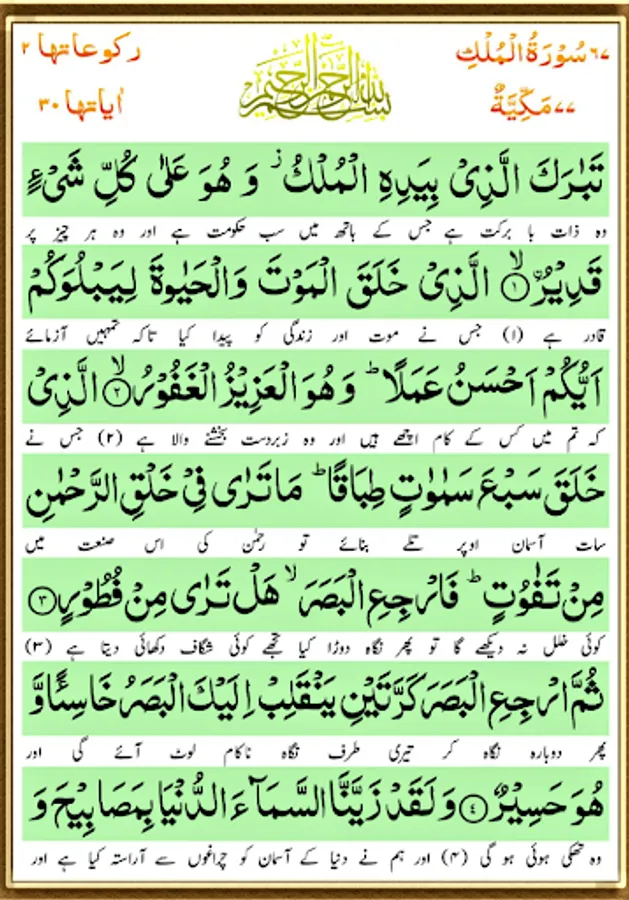 ٦٧ سُوْرَةُ الْمُلْكِ
٧٧ مَكِّيَّةٌ
بِسْمِ اللّٰهِ الرَّحْمٰنِ الرَّحِيْمِ
رکوعاتها ٢
اٰیاتها ٣٠
تَبٰرَكَ الَّذِیْ بِیَدِهِ الْمُلْكُ ؗ وَ هُوَ عَلٰی كُلِّ شَیْءٍ
وہ ذات با برکت ہے جس کے ہاتھ میں سب حکومت ہے اور وہ ہر چیز پر
قَدِیْرُ ۙ﴿۱﴾ الَّذِیْ خَلَقَ الْمَوْتَ وَالْحَیٰوةَ لِیَبْلُوَكُمْ
قادر ہے (۱) جس نے موت اور زندگی کو پیدا کیا تاکہ تمہیں آزمائے
اَیُّكُمْ اَحْسَنُ عَمَلًا ؕ وَ هُوَ الْعَزِیْزُ الْغَفُوْرُ ۙ﴿۲﴾ الَّذِیْ
کہ تم میں کس کے کام اچھے ہیں اور وہ زبردست بخشنے والا ہے (۲) جس نے
خَلَقَ سَبْعَ سَمٰوٰتٍ طِبَاقًا ؕ مَا تَرٰی فِیْ خَلْقِ الرَّحْمٰنِ
سات آسمان اوپر تلے بنائے تو رحمٰن کی اس صنعت میں
مِنْ تَفٰوُتٍ ؕ فَارْجِعِ الْبَصَرَ ۙ هَلْ تَرٰی مِنْ فُطُوْرٍ ﴿۳﴾
کوئی خلل نہ دیکھے گا تو پھر نگاہ دوڑا کیا تجھے کوئی شگاف دکھائی دیتا ہے (۳)
ثُمَّ ارْجِعِ الْبَصَرَ كَرَّتَیْنِ یَنْقَلِبْ اِلَیْكَ الْبَصَرُ خَاسِئًا وَّ
پھر دوبارہ نگاہ کر تیری طرف نگاہ ناکام لوٹ آئے گی اور
هُوَ حَسِیْرٌ ﴿۴﴾ وَ لَقَدْ زَیَّنَّا السَّمَآءَ الدُّنْیَا بِمَصَابِیْحَ وَ
وہ تھکی ہوئی ہو گی (۴) اور ہم نے دنیا کے آسمان کو چراغوں سے آراستہ کیا ہے اور